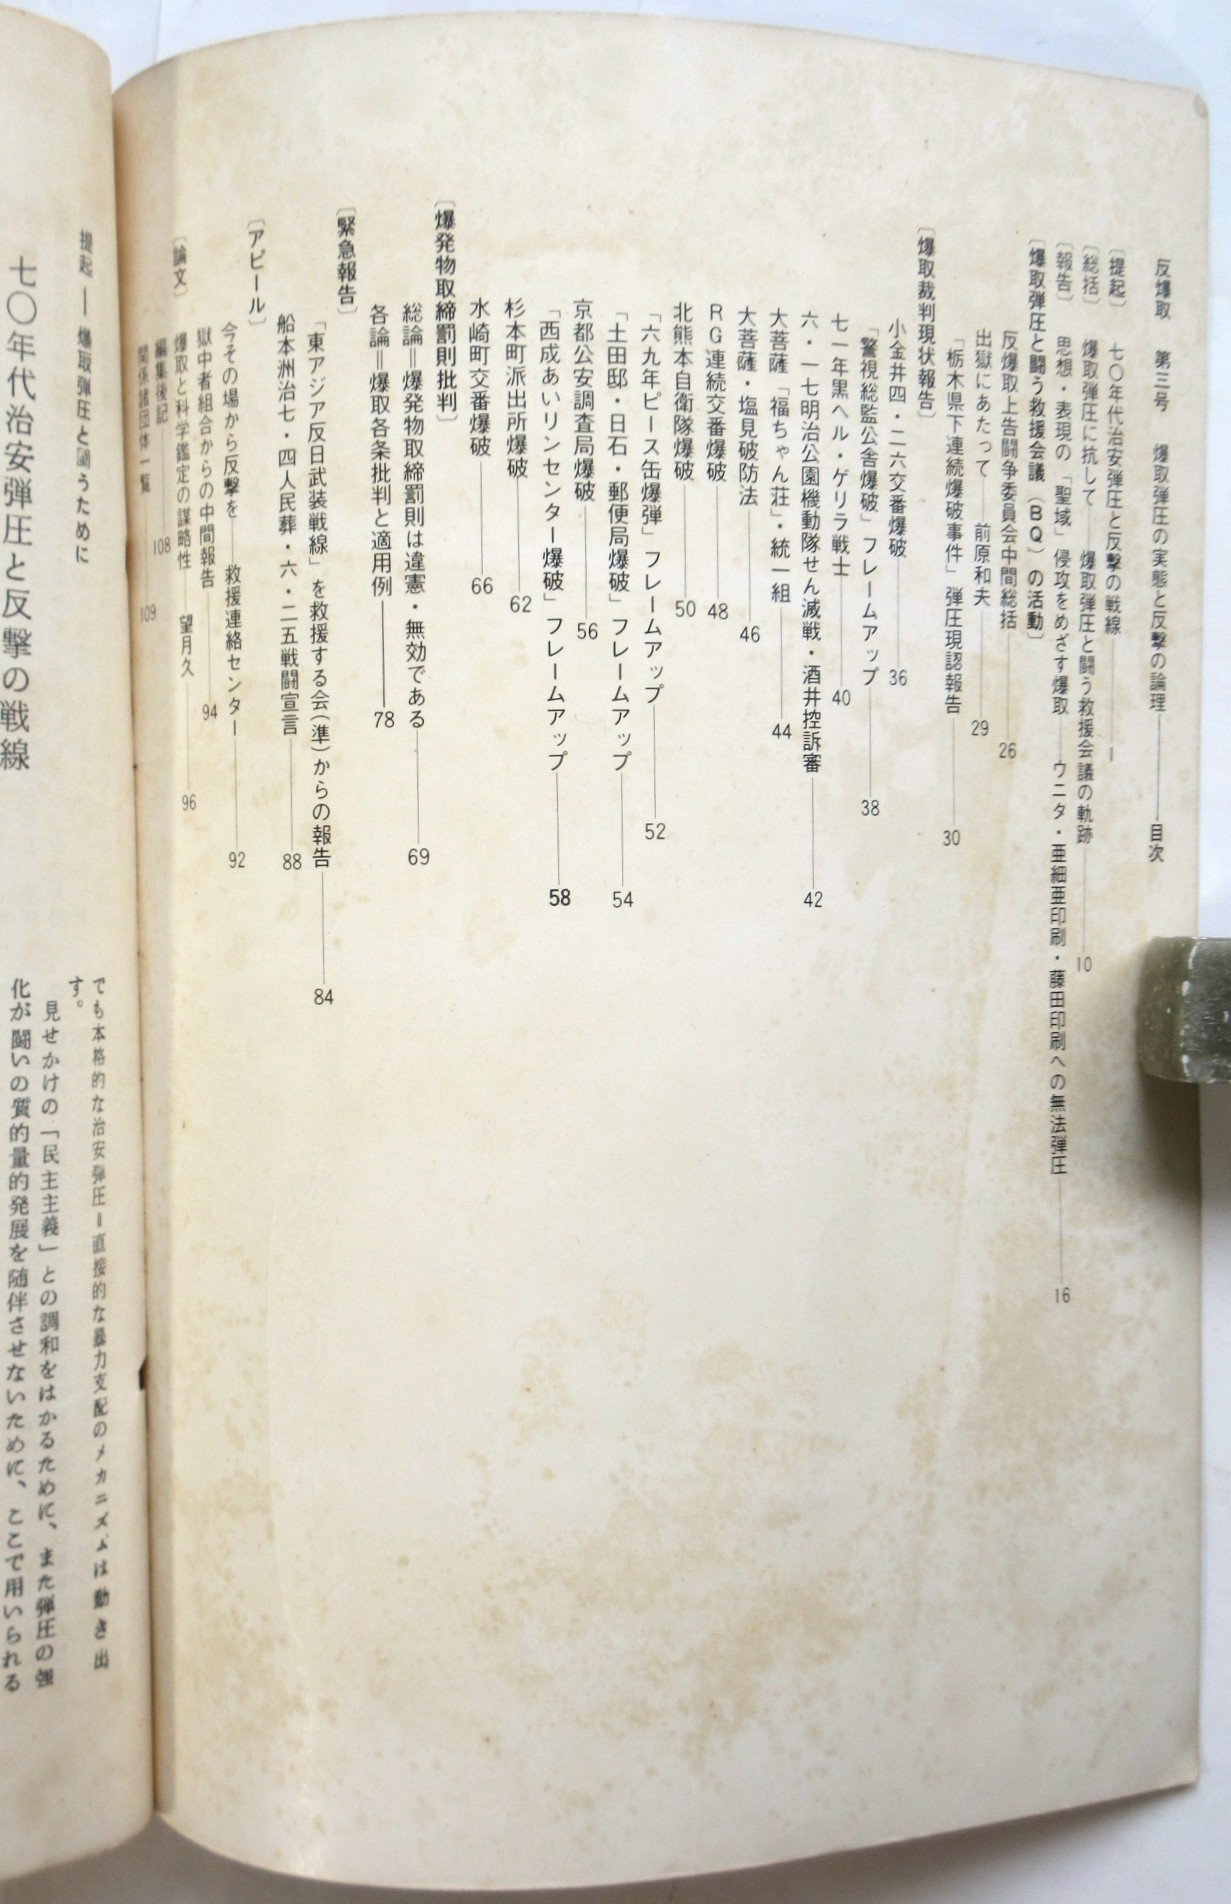 反爆取 第三号 爆取弾圧の実態と反撃の論理―――目次
〔提起〕 七〇年代治安弾圧と反撃の戦線―――1
〔総括〕 爆取弾圧に抗して―爆取弾圧と闘う救援会議の軌跡―――10
〔報告〕 思想・表現の「聖域」侵攻をめざす爆取―ウニタ・亜細亜印刷・藤田印刷への無法弾圧―――16
〔爆取弾圧と闘う救援会議（BQ）の活動〕
反爆取上告闘争委員会中間総括―――26
出獄にあたって―――前原和夫―――29
「栃木県下連続爆破事件」弾圧現認報告―――30
〔爆取裁判現状報告〕
小金井四・二六交番爆破―――36
「警視総監公舎爆破」フレームアップ―――38
七一年黒ヘル・ゲリラ戦士―――40
六・一七明治公園機動隊せん滅戦・酒井控訴審―――42
大菩薩「福ちゃん荘」・統一組―――44
大菩薩・塩見破防法―――46
RG連続交番爆破―――48
北熊本自衛隊爆破―――50
「六九年ピース缶爆弾」フレームアップ―――52
「土田邸・日石・郵便局爆破」フレームアップ―――54
京都公安調査局爆破―――56
「西成あいリンセンター爆破」フレームアップ―――58
杉本町派出所爆破―――62
水崎町交番爆破―――66
〔爆発物取締罰則批判〕
総論＝爆発物取締罰則は違憲・無効である―――69
各論＝爆取各条批判と適用例―――78
〔緊急報告〕
「東アジア反日武装戦線」を救援する会（準）からの報告―――84
船本洲治七・四人民葬・六・二五戦闘宣言―――88
〔アピール〕
今その場から反撃を―――救援連絡センター―――92
獄中者組合からの中間報告―――94
〔論文〕
爆取と科学鑑定の謀略性 望月久―――96
編集後記―――108
関係諸団体一覧―――109
提起―爆取弾圧と闘うために
七〇年代治安弾圧と反撃の戦線
でも本格的な治安弾圧＝直接的な暴力支配のメカニズムは動き出
す。
見せかけの「民主主義」との調和をはかるために、また弾圧の強
化が闘いの質的量的発展を随伴させないために、ここで用いられる